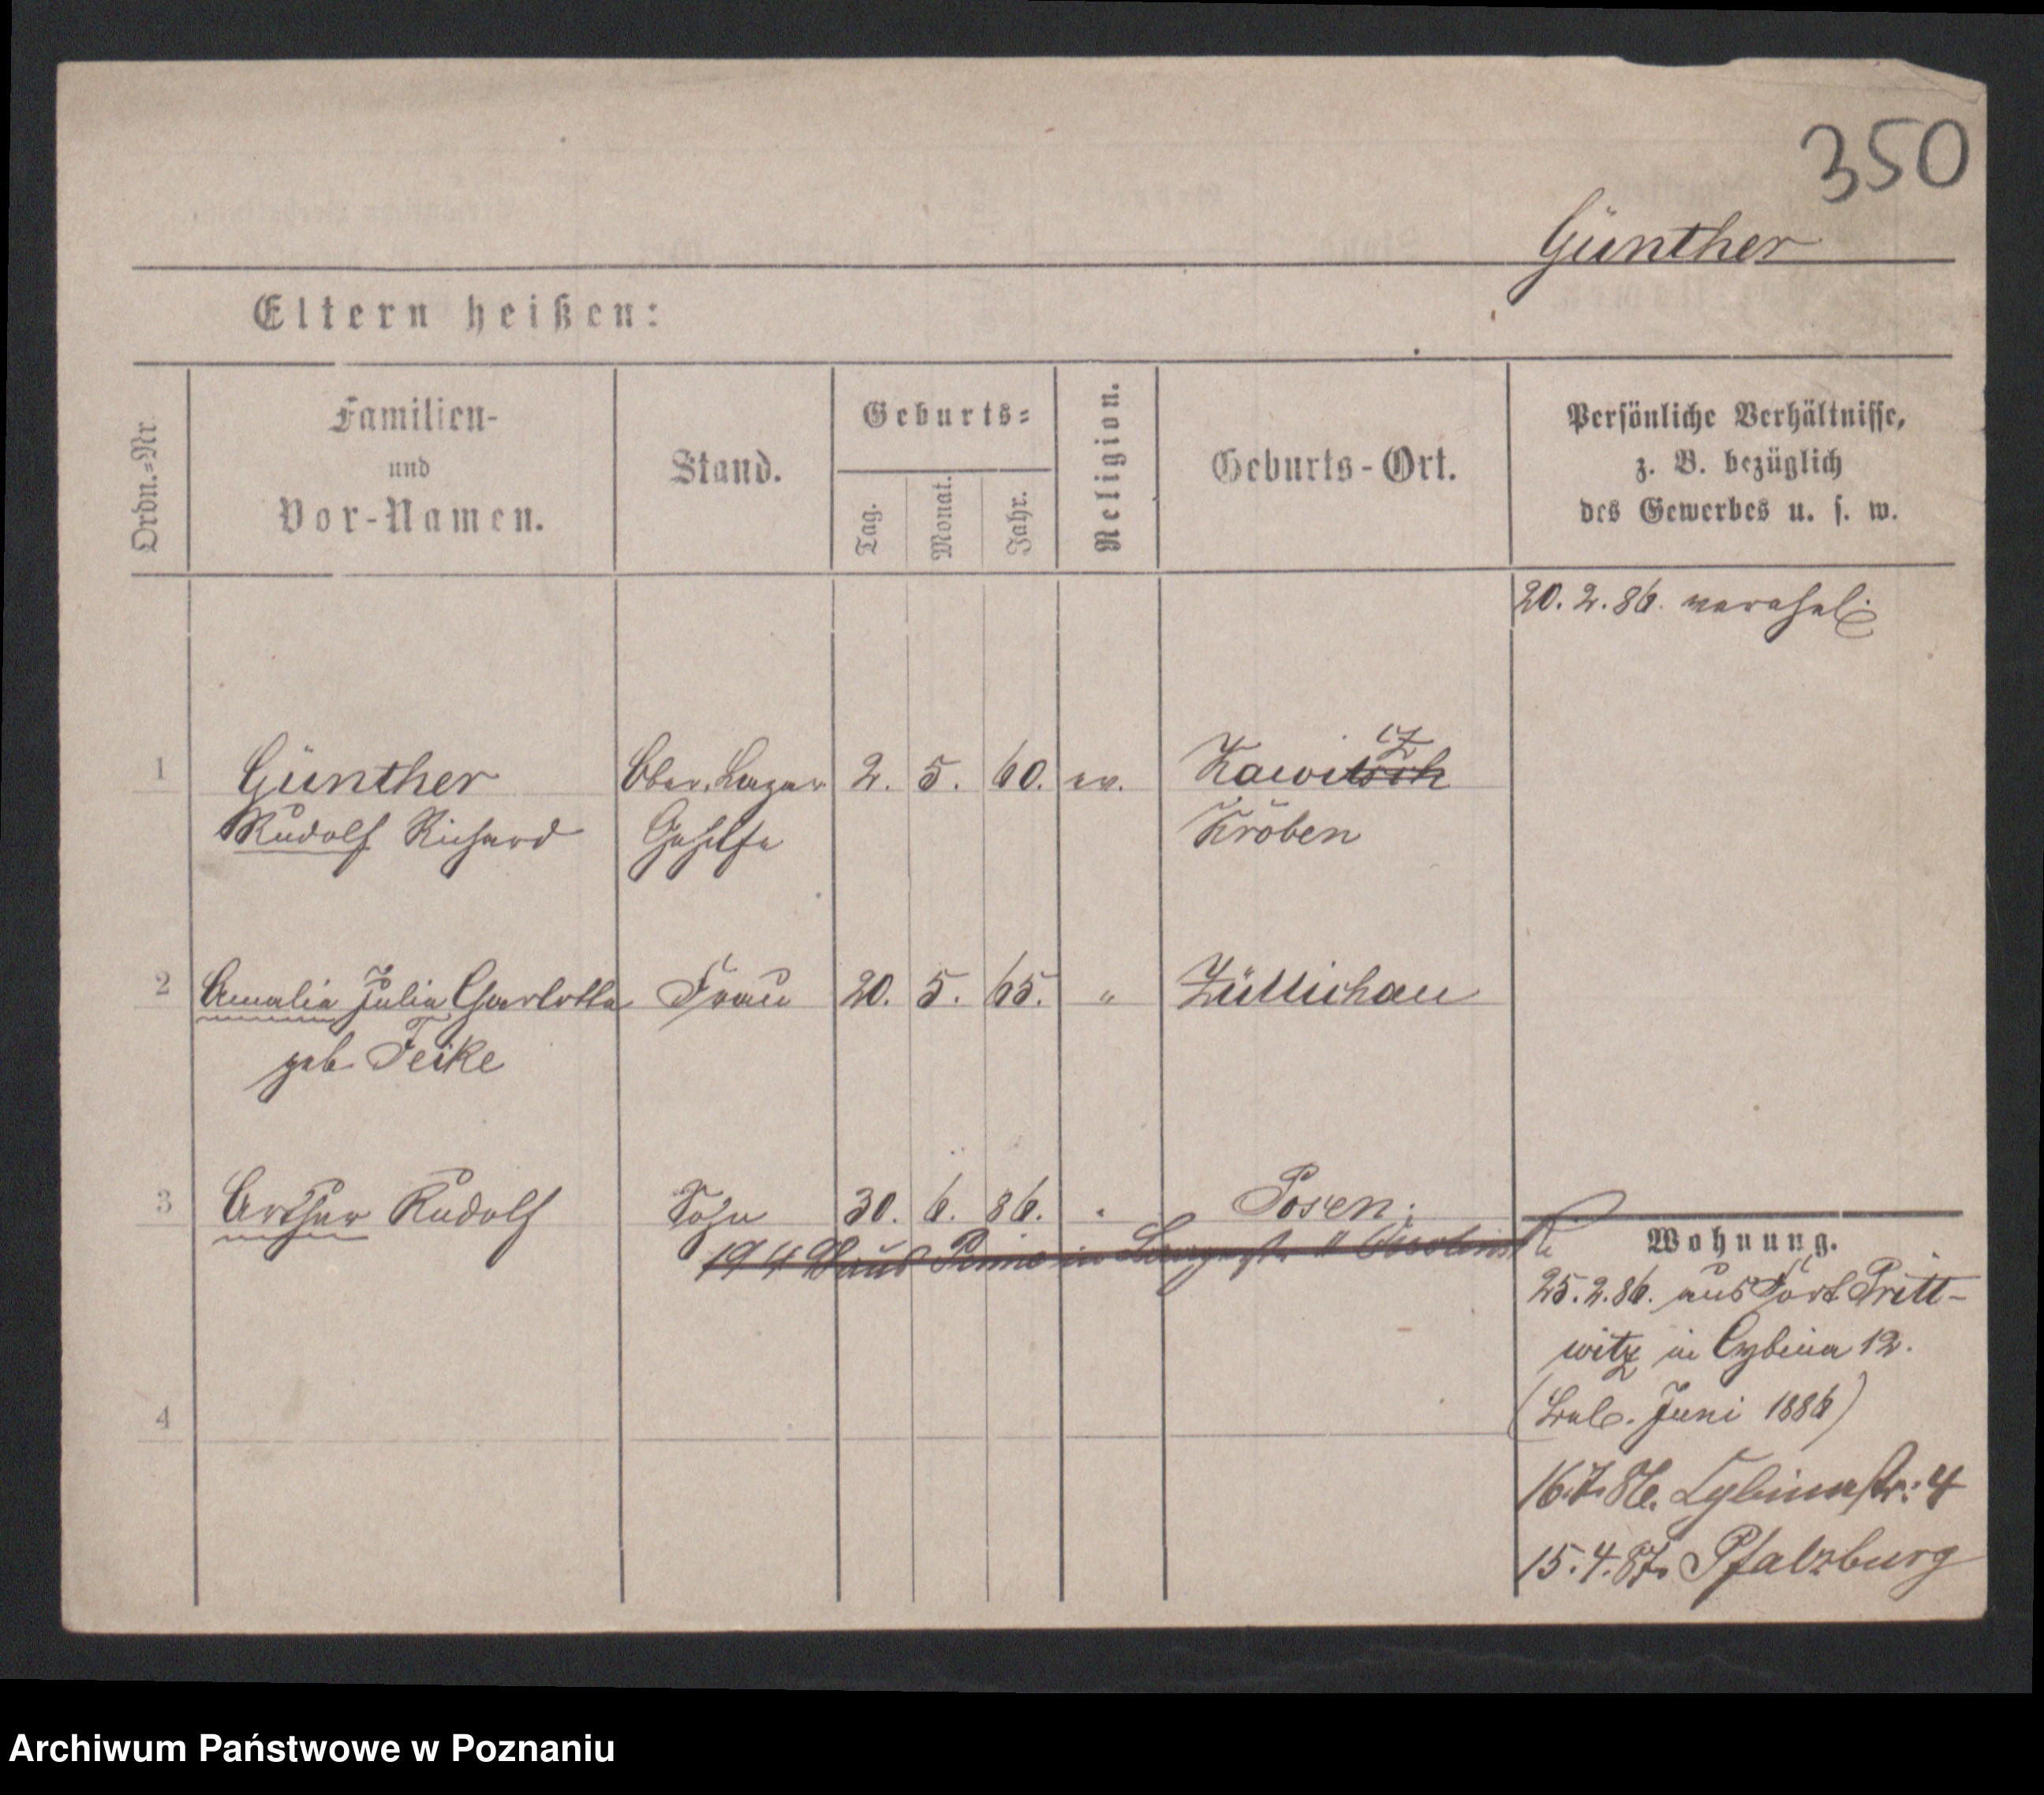 350
Günther
Eltern heißen:
Ordn.=Nr.
Familien-
und
Vor-Namen.
Stand.
Geburts=
Tag.
Monat.
Jahr.
Religion.
Geburts-Ort.
Persönliche Verhältnisse,
z. B. bezüglich
des Gewerbes u. s. w.
20.2.86. verehel.
1 Günther Ober. Lazar. 2. 5. 60. ev. Rawitsch cz
Rudolf Richard Gehilfe Kröben
2 Amalie Julie Charlotte Frau 20. 5. 65. " Züllichau
geb. Feike
3 Arthur Rudolf Sohn 30. 6. 86. " Posen.
19 4 aus in
Wohnung.
25.2.86. aus Fort Pritt-
witz in Cybina 12.
( Juni 1886)
16.7.86. Cybinastr: 4
15.4.87. Pfalzburg
4
Archiwum Państwowe w Poznaniu